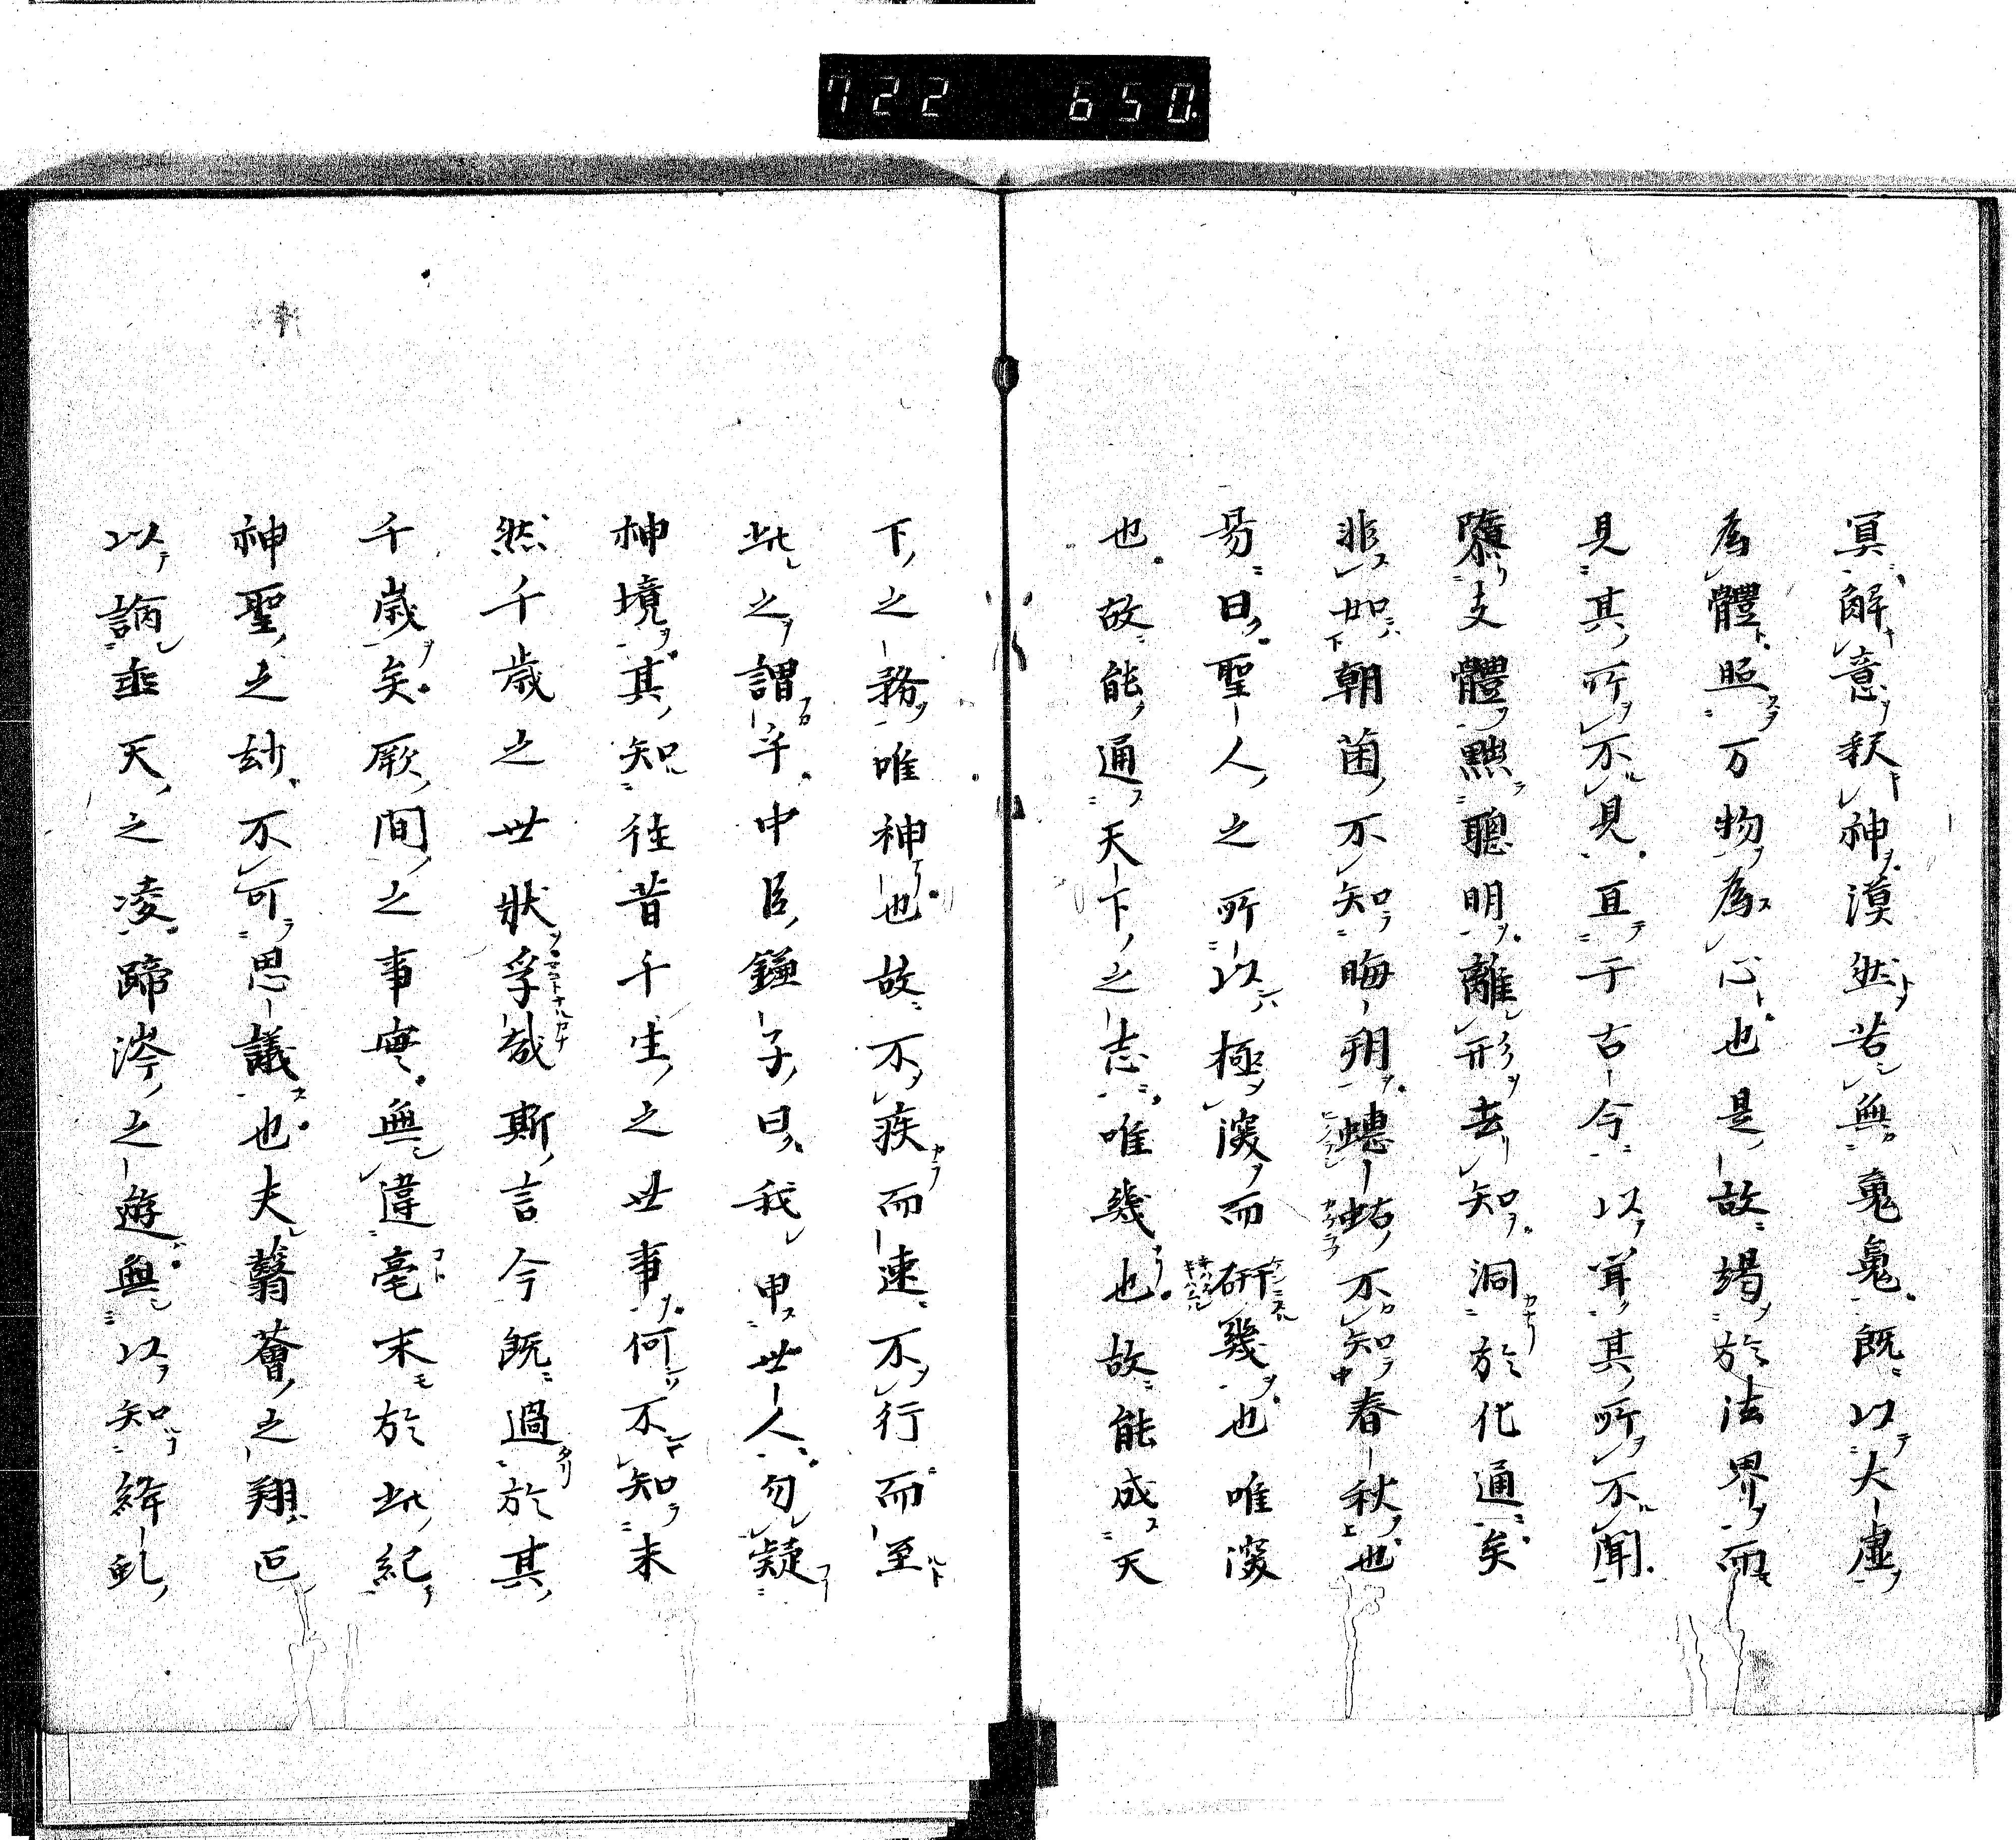 722 650.
冥解意釈神漠然若無䰟䰟既以大虚
為體照万物為心也是故場於法界而
見其所不見亘于古今以耳其所不聞
隳支體黜聰明離形去知洞於化通矣
非如朝菌不知晦朔蟪蛄不知春秋也
易曰聖人之所以極深而研幾也唯深
也故能通天下之志唯幾也故能成天
下之務唯神也故不疾而速不行而至
此之謂乎中臣鎌子曰我申世人勿疑
神境其知往昔千生之世事何不知未
然千歳之世狀孚哉斯言今既過於其
千歳矣厥間之事實無違毫末於此紀
神聖之刧不可思議也夫蘙薈之翔巴
以謫亜天之凌蹄涔之遊無以知絳虬